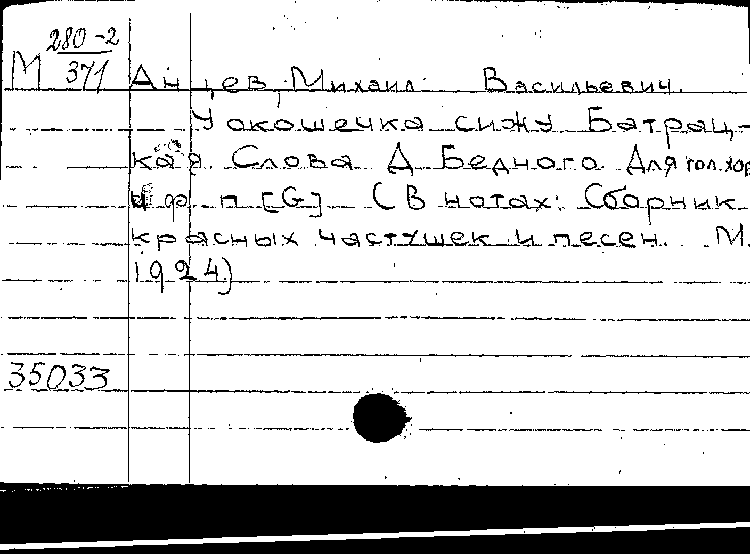 М 280-2/371
Анцев, Михаил Васильевич.
У окошечка сижу Батрац-
кая Слова Д Бедного Для гол. хор
и ф п [G] (В нотах: Сборник
красных частушек и песен. М.
1924)
35033